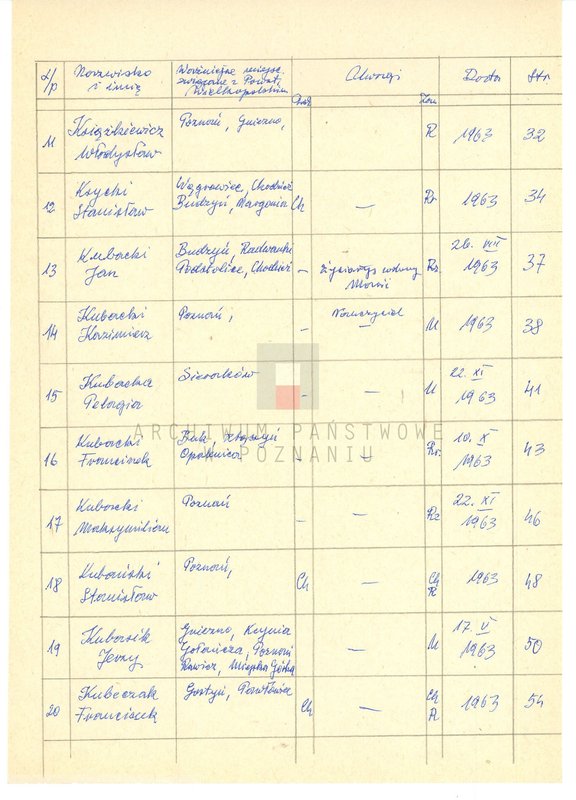 L/p Nazwisko i imię Ważniejsze miejsc. związane z Powst. Wielkopolskim Uwagi Data Str.
11 Książkiewicz Władysław Poznań, Gniezno, R 1963 32
12 Krycki Stanisław Wągrowiec, Chodzież Budzyń, Margonin Ch — Rr 1963 34
13 Kubacki Jan Budzyń, Radwanki Podstolice, Chodzież – Życiorys własny Rr 26. VIII 1963 37
14 Kubacki Kazimierz Poznań, – Nauczyciel — U 1963 38
15 Kubacka Pelagia Sieraków – — U 22. XI 1963 41
16 Kubacki Franciszek Buk, Opalenica – — Rr. 10. X 1963 43
17 Kubacki Maksymilian Poznań – — Rz 22. XI 1963 46
18 Kubański Stanisław Poznań, Ch — Ch R 1963 48
19 Kubasik Jerzy Gniezno, Kcynia Gołańcza, Poznań Rawicz, Miejska Górka — U 17. V 1963 50
20 Kubeczak Franciszek Gostyń, Ch — Ch R 1963 54
ARCHIWUM PAŃSTWOWE
W POZNANIU